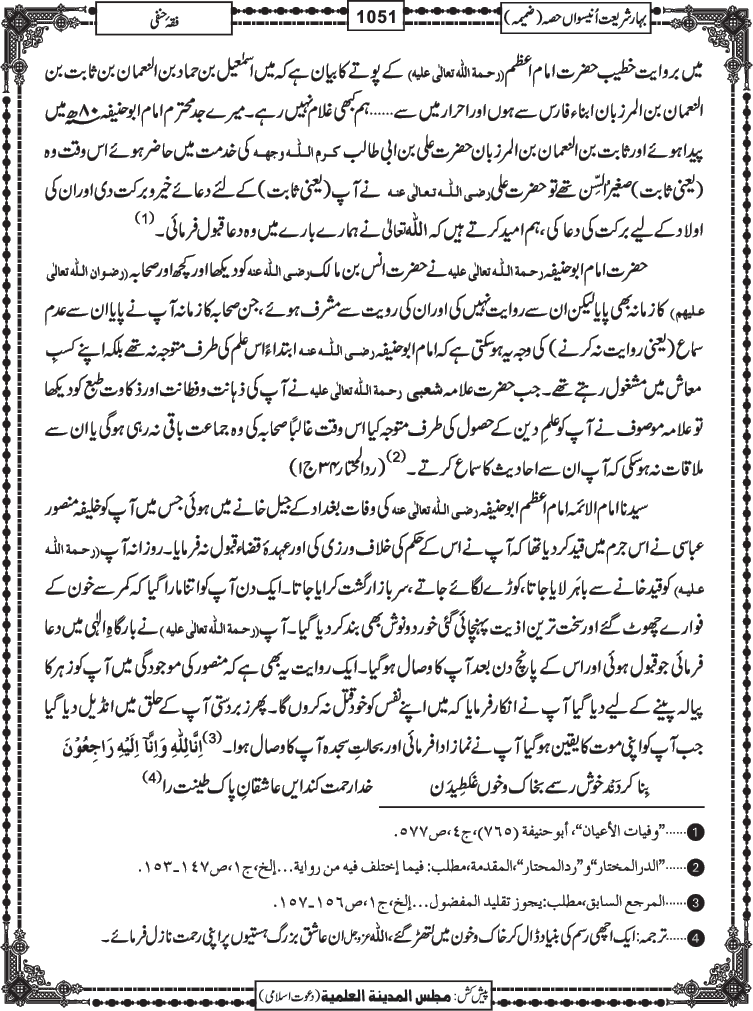 بہارِشریعت اُنیسواں حصہ (ضمیمہ)
1051
فقۂ حنفی
میں بروایت خطیب حضرت امام اعظم (رحمة اللّٰه تعالٰی عليه) کے پوتے کا بیان ہے کہ میں اسمٰعیل بن حماد بن النعمان بن ثابت بن
النعمان بن المرزبان ابناء فارس سے ہوں اور احرار میں سے ......ہم کبھی غلام نہیں رہے۔ میرے جد محترم امام ابوحنیفہ ۸۰ھ میں
پیدا ہوئے اور ثابت بن النعمان بن المرزبان حضرت علی بن ابی طالب كرم اللّٰه وجهه کی خدمت میں حاضر ہوئے اس وقت وہ
(یعنی ثابت) صغیر السِّن تھے تو حضرت علی رضی اللّٰه تعالٰی عنه نے آپ (یعنی ثابت) کے لئے دعائے خیر و برکت دی اور ان کی
اولاد کے لیے برکت کی دعا کی، ہم امید کرتے ہیں کہ اللّٰه تعالیٰ نے ہمارے بارے میں وہ دعا قبول فرمائی۔ (1)
حضرت امام ابوحنیفہ رحمة اللّٰه تعالٰی عليه نے حضرت انس بن مالک رضی اللّٰه عنه کو دیکھا اور کچھ اور صحابہ (رضوان اللّٰه تعالٰی
عليهم) کا زمانہ بھی پایا لیکن ان سے روایت نہیں کی اور ان کی رویت سے مشرف ہوئے، جن صحابہ کا زمانہ آپ نے پایا ان سے عدم
سماع (یعنی روایت نہ کرنے) کی وجہ یہ ہوسکتی ہے کہ امام ابوحنیفہ رضی اللّٰه عنه ابتداءً اس علم کی طرف متوجہ نہ تھے بلکہ اپنے کسبِ
معاش میں مشغول رہتے تھے۔ جب حضرت علامہ شعبی رحمة اللّٰه تعالٰی عليه نے آپ کی ذہانت و فطانت اور ذکاوت طبع کو دیکھا
تو علامہ موصوف نے آپ کو علمِ دین کے حصول کی طرف متوجہ کیا اس وقت غالباً صحابہ کی وہ جماعت باقی نہ رہی ہوگی یا ان سے
ملاقات نہ ہوسکی کہ آپ ان سے احادیث کا سماع کرتے۔ (2) (رد المحتار ۳۴ ج۱)
سیدنا امام الائمہ امام اعظم ابوحنیفہ رضی اللّٰه تعالٰی عنه کی وفات بغداد کے جیل خانے میں ہوئی جس میں آپ کو خلیفہ منصور
عباسی نے اس جرم میں قید کر دیا تھا کہ آپ نے اس کے حکم کی خلاف ورزی کی اور عہدۂ قضاء قبول نہ فرمایا۔ روزانہ آپ (رحمة اللّٰه
عليه) کو قید خانے سے باہر لایا جاتا، کوڑے لگائے جاتے، سربازار گشت کرایا جاتا۔ ایک دن آپ کو اتنا مارا گیا کہ کمر سے خون کے
فوارے چھوٹ گئے اور سخت ترین اذیت پہنچائی گئی خورد و نوش بھی بند کر دیا گیا۔ آپ (رحمة اللّٰه تعالٰی عليه) نے بارگاہِ الٰہی میں دعا
فرمائی جو قبول ہوئی اور اس کے پانچ دن بعد آپ کا وصال ہوگیا۔ ایک روایت یہ بھی ہے کہ منصور کی موجودگی میں آپ کو زہر کا
پیالہ پینے کے لیے دیا گیا آپ نے انکار فرمایا کہ میں اپنے نفس کو خود قتل نہ کروں گا۔ پھر زبردستی آپ کے حلق میں انڈیل دیا گیا
جب آپ کو اپنی موت کا یقین ہوگیا آپ نے نماز ادا فرمائی اور بحالتِ سجدہ آپ کا وصال ہوا۔ (3) اِنَّا لِلّٰهِ وَاِنَّاۤ اِلَيْهِ رَاجِعُوْنَ
بِنا کردَنْد خوش رسمے بخاک و خوں غلطیدَن خدا رحمت کند ایں عاشقانِ پاک طینت را (4)
1......"وفيات الأعيان"، أبو حنيفة (٧٦٥)، ج٤، ص٥٧٧.
2......"الدر المختار" و"رد المحتار"، المقدمة، مطلب: فيما إختلف فيه من رواية...إلخ، ج١، ص١٤٧ـ١٥٣.
3......المرجع السابق، مطلب: يجوز تقليد المفضول...إلخ، ج١، ص١٥٦ـ١٥٧.
4......ترجمہ: ایک اچھی رسم کی بنیاد ڈال کر خاک و خون میں لتھڑ گئے، اللّٰه عزوجل ان عاشق بزرگ ہستیوں پر اپنی رحمت نازل فرمائے۔
پیش کش: مجلس المدينة العلمية (دعوت اسلامی)